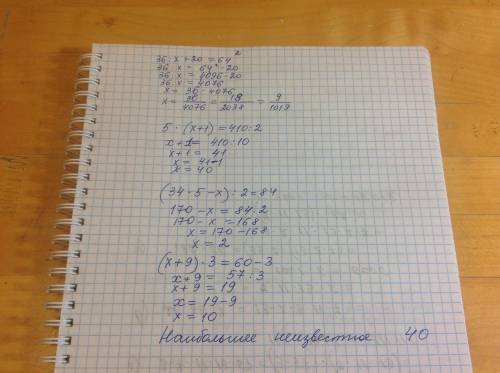 36:x+20=64²
36:x=64²-20
36:x=4096-20
36:x=4076
x=36:4076
x=36/4076=18/2038=9/1019
5·(x+1)=410:2
x+1=410:10
x+1=41
x=41-1
x=40
(34·5-x):2=84
170-x=84·2
170-x=168
x=170-168
x=2
(x+9)·3=60-3
x+9=57:3
x+9=19
x=19-9
x=10
Наибольшее неизвестное 40